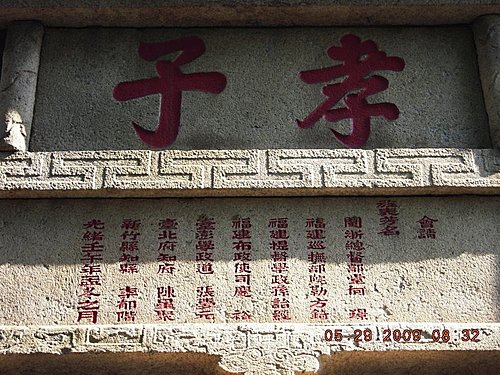 孝子
會請
旌表芳名
閩浙總督部堂何 璟
福建巡撫部院勒方錡
福建提督學政孫詒經
福建布政使司
臺澎學政道 張夢元
臺北府知府 陳星聚
新竹縣知縣 李郁階
光緒壬午年 之月
05-29-2009 08:32